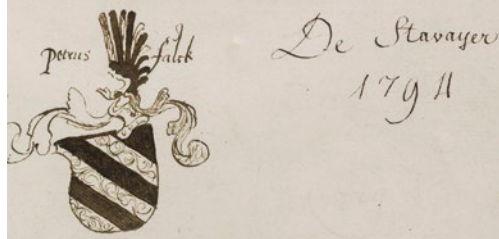 Petrus falck
De Stavayer
1791